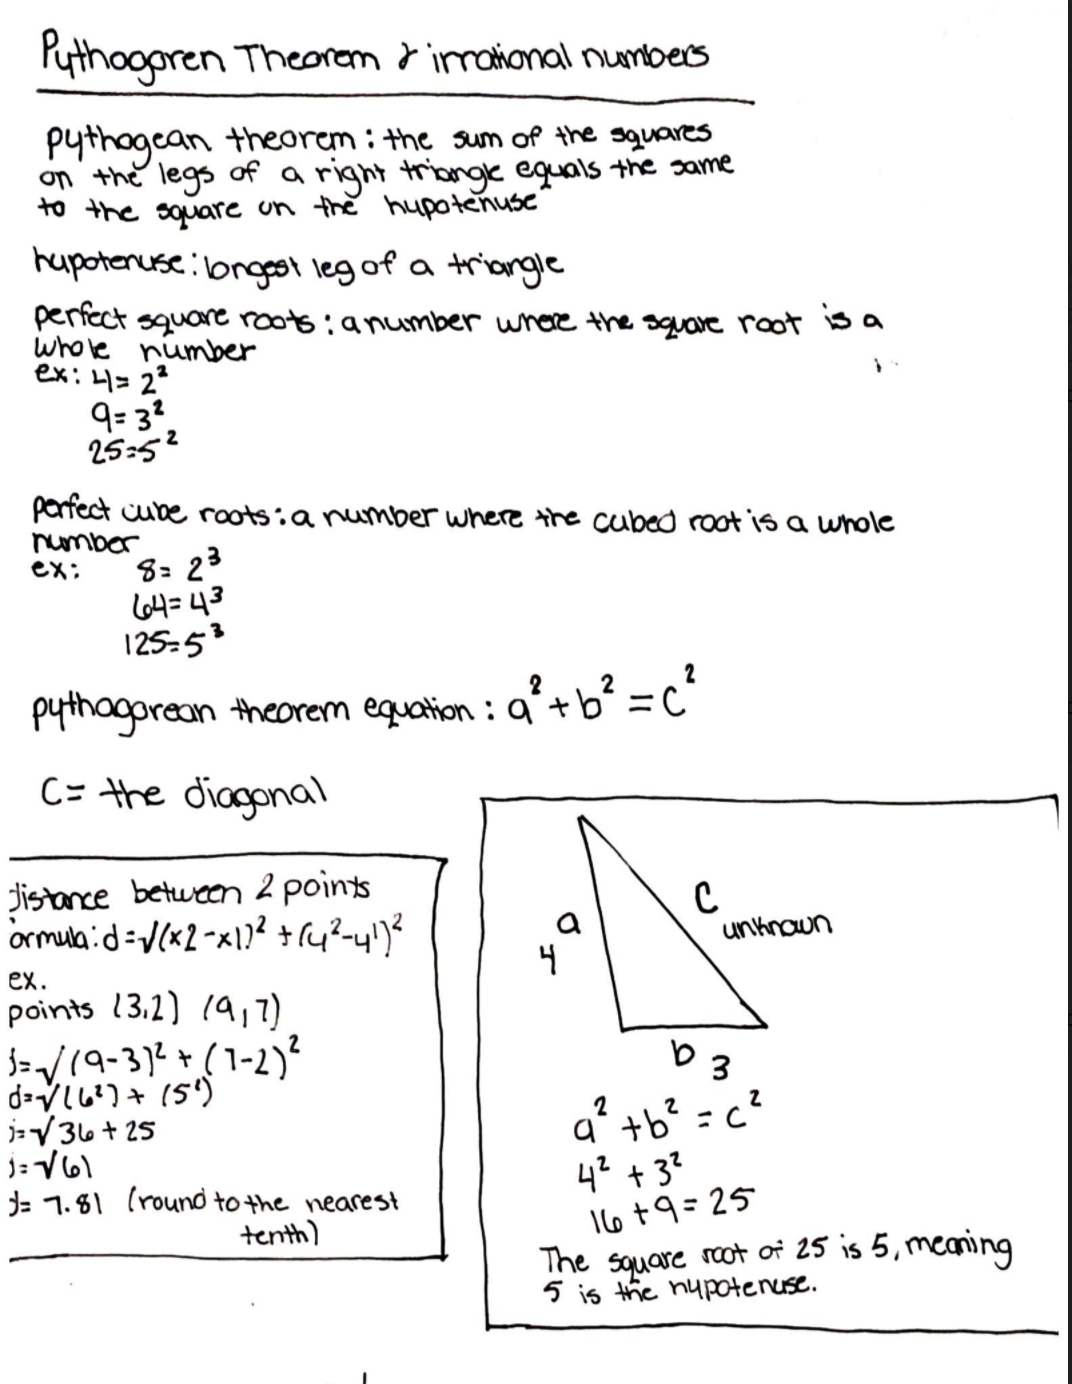 Pythagoren Theorem & irrational numbers
pythagean theorem: the sum of the squares
on the legs of a right triangle equals the same
to the square on the hupotenuse
hupotenuse: longest leg of a triangle
perfect square roots: a number where the square root is a
whole number
ex: 4=2²
9=3²
25=5²
perfect cube roots: a number where the cubed root is a whole
number
ex: 8=2³
64=4³
125=5³
pythagorean theorem equation: a²+b²=c²
C= the diagonal
distance between 2 points
formula: d=√(x2-x1)²+(y²-y¹)²
ex.
points (3,2) (9,7)
d=√(9-3)²+(7-2)²
d=√(6²)+(5²)
d=√36+25
d=√61
d= 7.81 (round to the nearest
tenth)
a
4
C
unknown
b 3
a²+b²=c²
4²+3²
16+9=25
The square root of 25 is 5, meaning
5 is the hypotenuse.